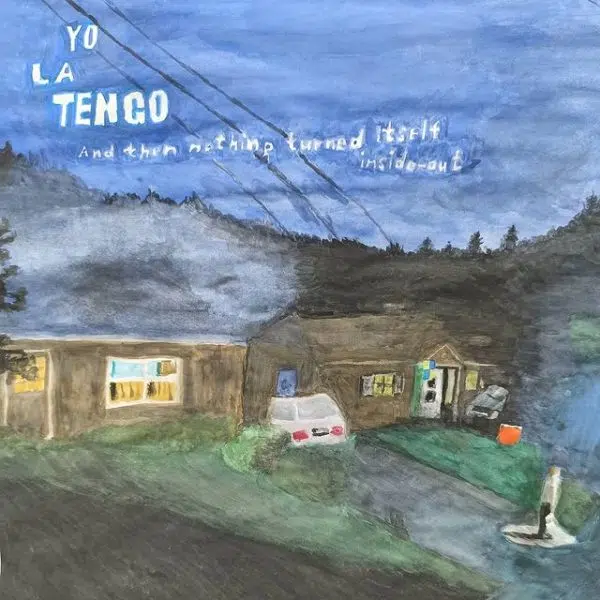 YO
LA
TENGO
And then nothing turned itself
inside-out